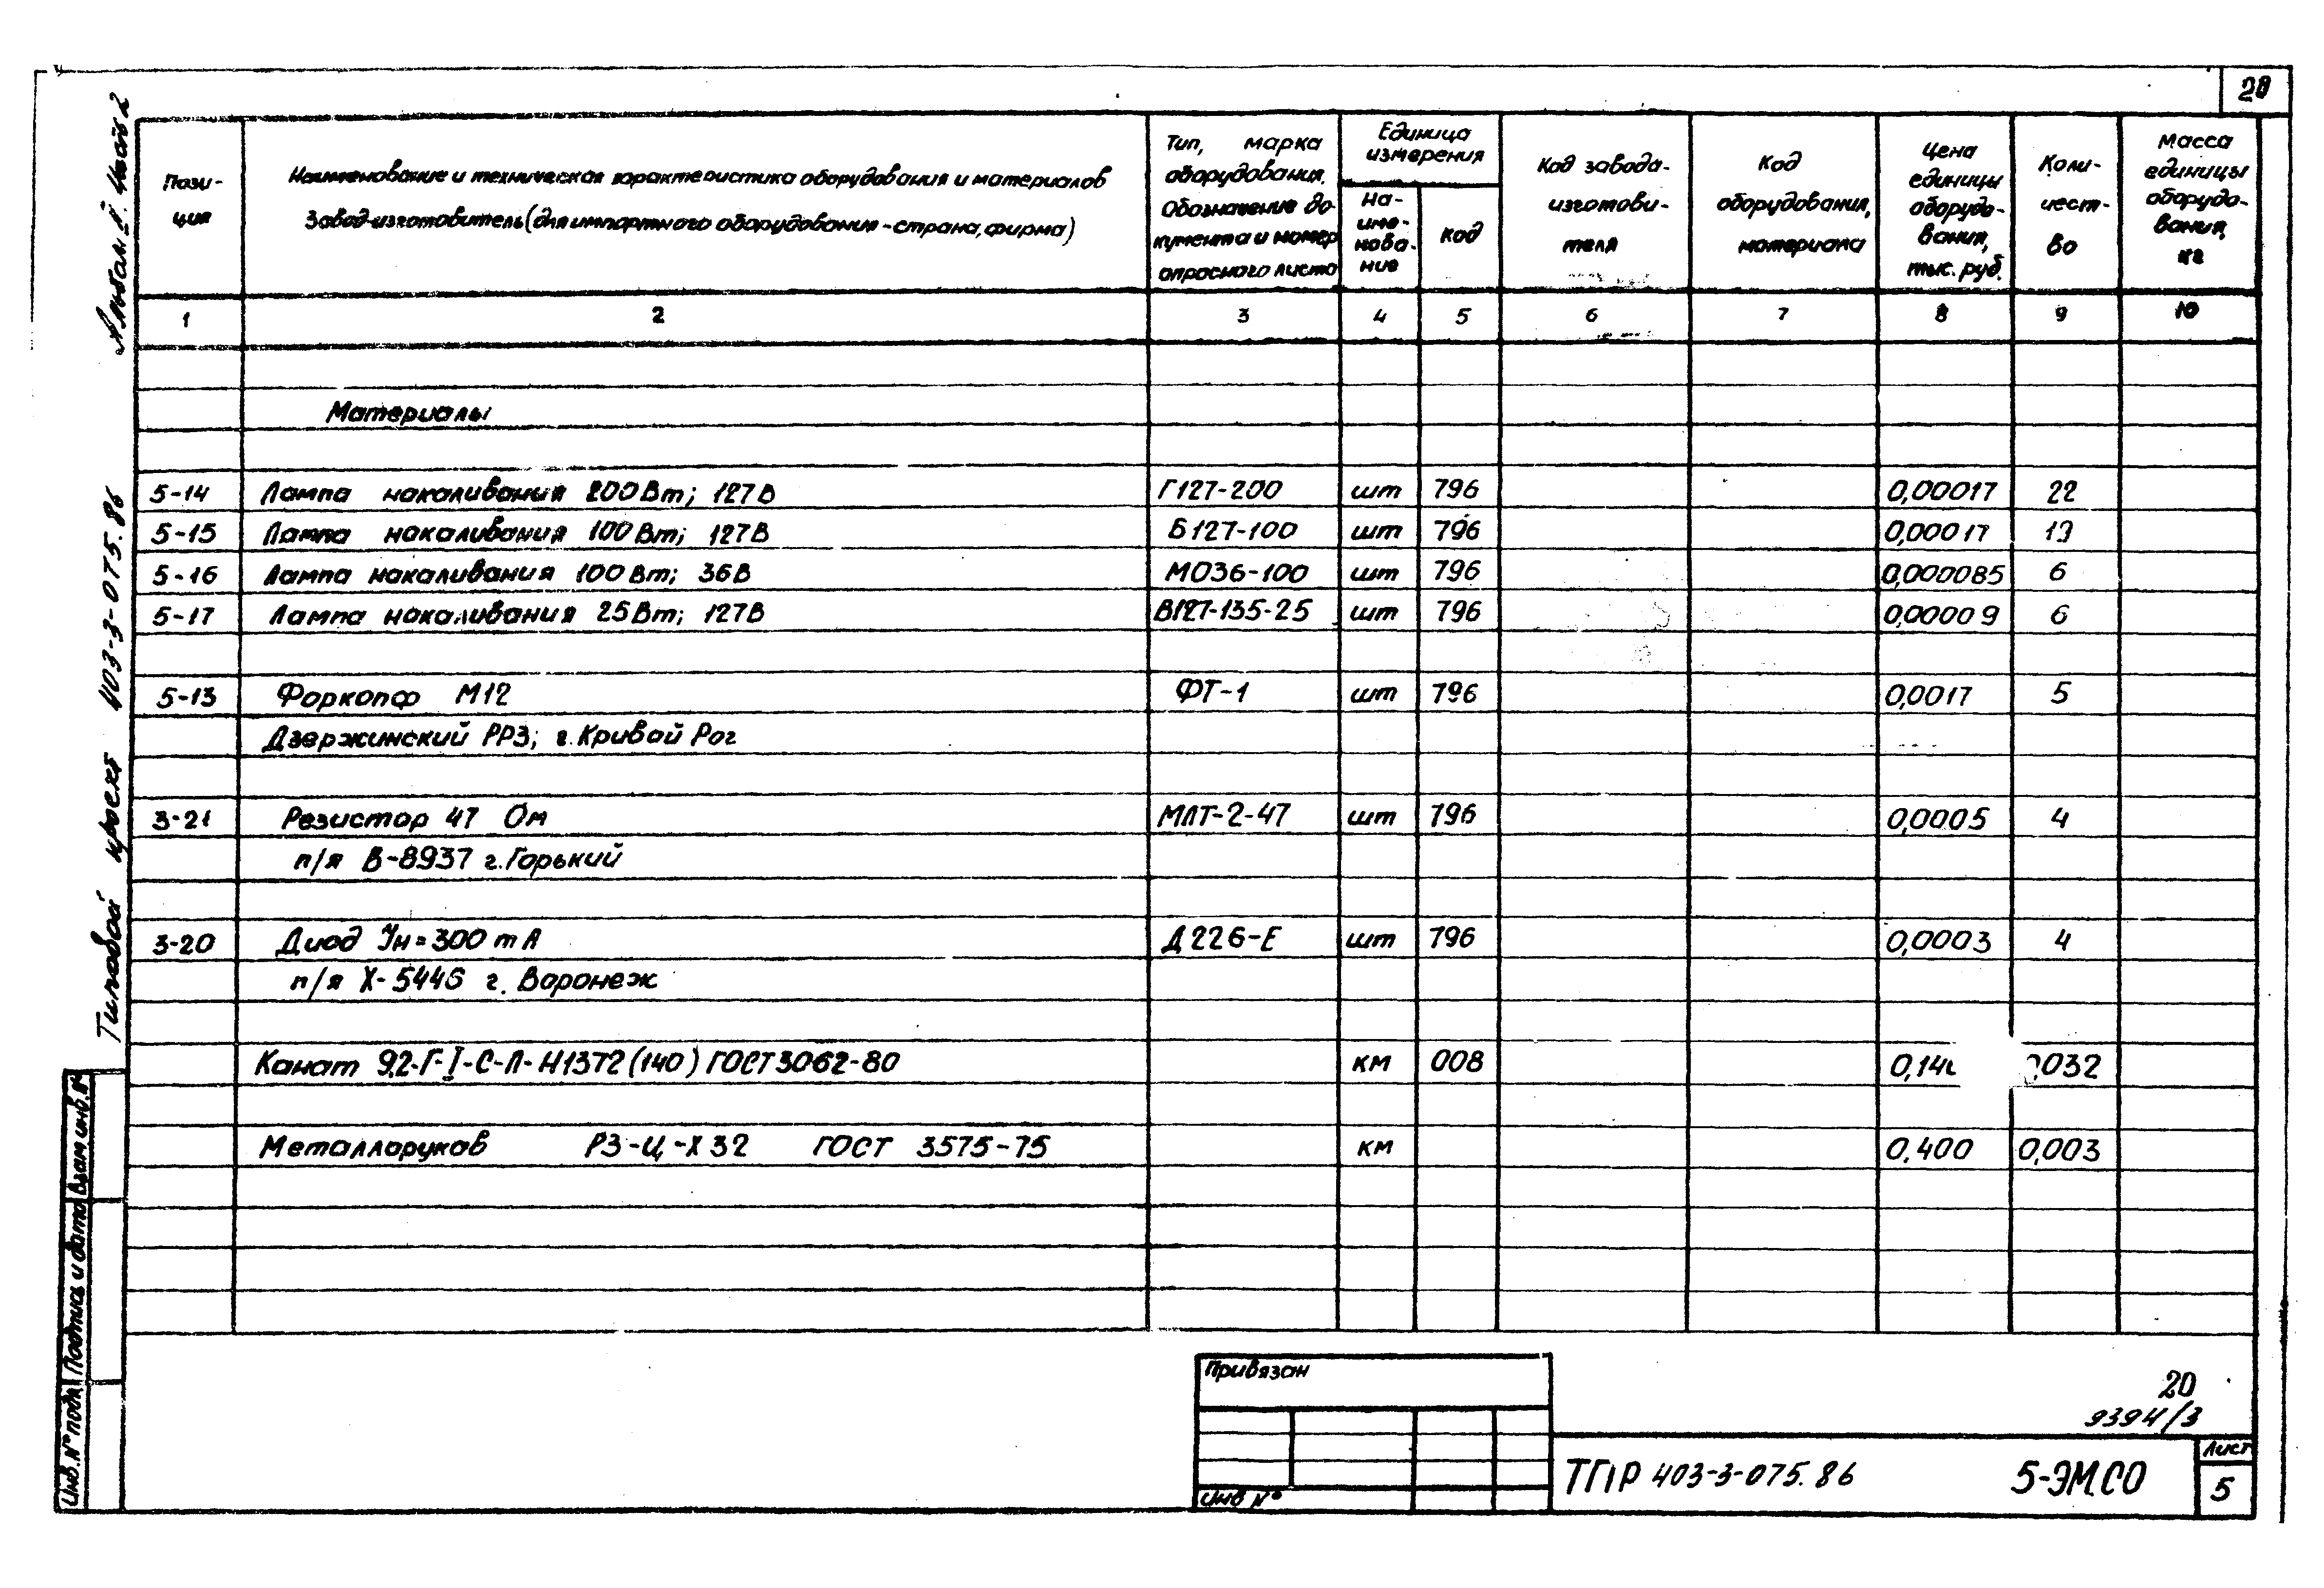 20
Альбом V. Часть 2
Типовой проект 403-3-075.86
Пози-
ция
Наименование и техническая характеристика оборудования и материалов
Завод-изготовитель (для импортного оборудования - страна, фирма)
Тип, марка
оборудования.
Обозначение до-
кумента и номер
опросного листа
Единица
измерения
На-
име-
нова-
ние
код
Код завода-
изготови-
теля
Код
оборудования,
материала
Цена
единицы
оборудо-
вания,
тыс. руб.
Коли-
чест-
во
Масса
единицы
оборудо-
вания,
кг
1 2 3 4 5 6 7 8 9 10
Материалы
5-14 Лампа накаливания 200Вт; 127В Г127-200 шт 796 0,00017 22
5-15 Лампа накаливания 100Вт; 127В Б127-100 шт 796 0,00017
5-16 Лампа накаливания 100Вт; 36В МО36-100 шт 796 0,000085 6
5-17 Лампа накаливания 25Вт; 127В В127-135-25 шт 796 0,00009 6
5-13 Форкопф М12 ФТ-1 шт 796 0,0017 5
Дзержинский РРЗ; г. Кривой Рог
3-21 Резистор 47 Ом МЛТ-2-47 шт 796 0,0005 4
п/я В-8937 г. Горький
3-20 Диод Iн=300 mA Д226-Е шт 796 0,0003 4
п/я Х-5446 г. Воронеж
Канат 9,2-Г-I-С-Л-Н1372(140) ГОСТ 3062-80 км 008
Металлорукав РЗ-Ц-Х 32 ГОСТ 3575-75 км 0,400 0,003
Взам инв. №
Подпись и дата
Инв. № подл
Привязан
Инв №
20
9394/3
ТПР 403-3-075.86
5-ЭМ.СО
Лист
5